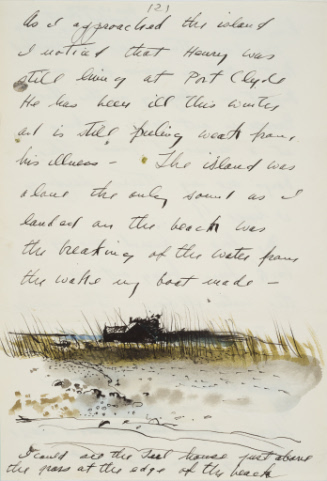 (2)
As I approached the island
I noticed that Henry was
still living at Port Clyde
He has been ill this winter
and is still feeling weak from
his illness – The island was
alone the only sound as I
landed on the beach was
the breaking of the water from
the wake my boat made –
I could see the house just above
the grass at the edge of the beach